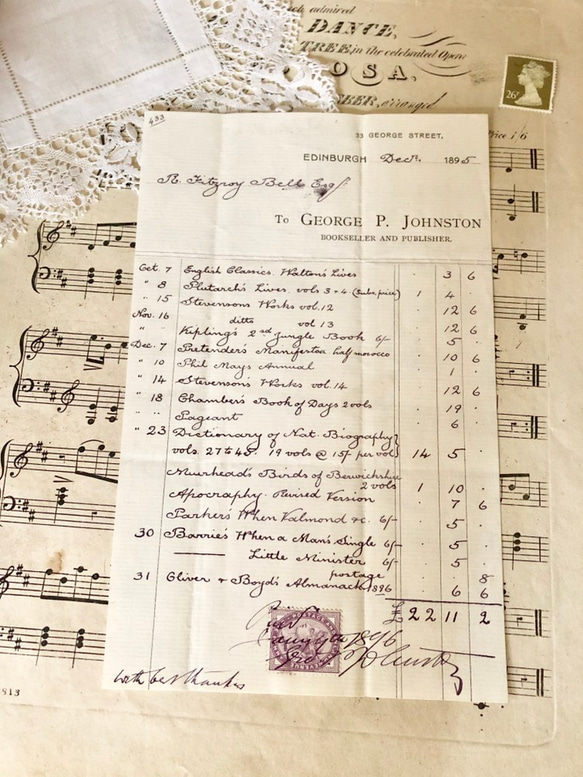 DANCE,
TREE, in the celebrated Opera
OSA,
arranged
26P
Price 1/6
433
33 GEORGE STREET,
EDINBURGH Decr. 1895
R. Fitzroy Bell Esq
To GEORGE P. JOHNSTON
BOOKSELLER AND PUBLISHER.
Oct. 7 English Classics. Walton's Lives 3 6
" 8 Plutarch's Lives. vols 3 & 4 (Subs. price) 1 4 .
" 15 Stevensons Works vol. 12 12 6
Nov. 16 ditto vol 13 12 6
" Kipling's 2nd Jungle Book 6/- 5 .
Dec. 7 Pretender's Manifestoes half morocco 10 6
" 10 Phil Mays Annual 1 .
" 14 Stevensons Works vol. 14 12 6
" 18 Chamber's Book of Days 2 vols 19 .
" " Pageant 6 .
" 23 Dictionary of Nat. Biography
vols. 27 to 45. 19 vols @ 15/- per vol 14 5 .
Muirhead's Birds of Berwickshire
2 vols 1 10 .
Apocraphy. Revised Version 7 6
Parker's When Valmond &c. 6/- 5 .
30 Barrie's When a Man's Single 6/- 5 .
—— Little Minister 6/- 5 .
postage 8
31 Oliver & Boyd's Almanack 1896 6 6
£22 11 2
1896
Geo. P. Johnston
with best thanks
913